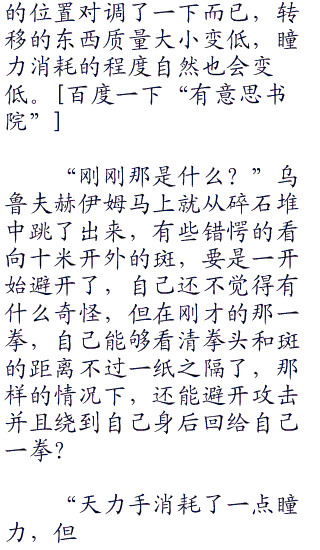 的位置对调了一下而已，转
移的东西质量大小变低，瞳
力消耗的程度自然也会变
低。[百度一下“有意思书
院”]
“刚刚那是什么？”乌
鲁夫赫伊姆马上就从碎石堆
中跳了出来，有些错愕的看
向十米开外的斑，要是一开
始避开了，自己还不觉得有
什么奇怪，但在刚才的那一
拳，自己能够看清拳头和斑
的距离不过一纸之隔了，那
样的情况下，还能避开攻击
并且绕到自己身后回给自己
一拳？
“天力手消耗了一点瞳
力，但